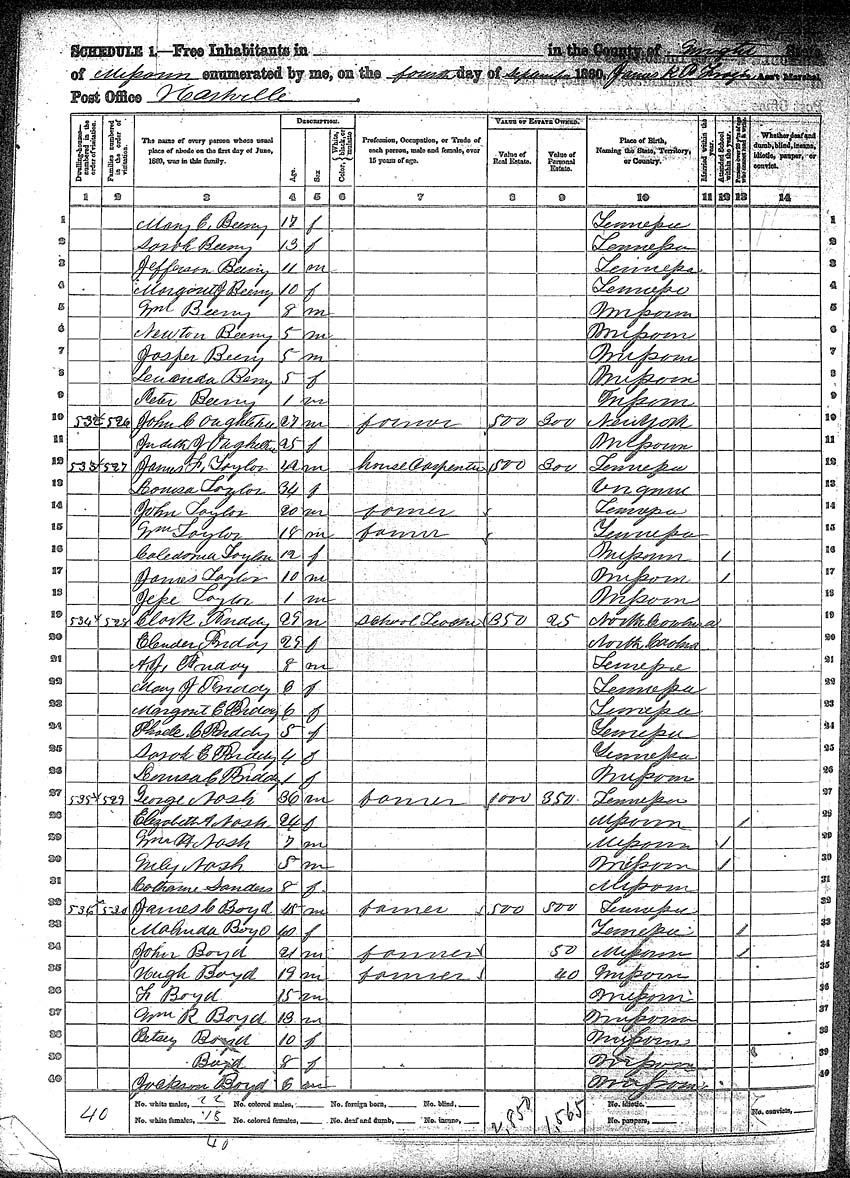 SCHEDULE 1.—Free Inhabitants in in the County of Wright State
of Missouri enumerated by me, on the fourth day of September 1860. James R Ass't Marshal.
Post Office Hartville
Dwelling-house—numbered in the order of visitation. Families numbered in the order of visitation. The name of every person whose usual place of abode on the first day of June, 1860, was in this family. DESCRIPTION. Age. Sex Color, White, black, or mulatto Profession, Occupation, or Trade of each person, male and female, over 15 years of age. VALUE OF ESTATE OWNED. Value of Real Estate. Value of Personal Estate. Place of Birth, Naming the State, Territory, or Country. Married within the year. Attended School within the year. Persons over 20 y'rs of age who cannot read & write. Whether deaf and dumb, blind, insane, idiotic, pauper, or convict.
1 2 3 4 5 6 7 8 9 10 11 12 13 14
1 Mary C. Beeny 17 f Tennessee 1
2 Sarah Beeny 13 f Tennessee 2
3 Jefferson Beeny 11 m Tennessee 3
4 Margaret J Beeny 10 f Tennessee 4
5 Wm Beeny 8 m Missouri 5
6 Newton Beeny 5 m Missouri 6
7 Jasper Beeny 5 m Missouri 7
8 Beeny 5 f Missouri 8
9 Peter Beeny 1 m Missouri 9
10 532 526 John C 27 m farmer 500 300 New York 10
11 Judith J 25 f Missouri 11
12 533 527 James F. Taylor 42 m house Carpenter 500 300 Tennessee 12
13 Louisa Taylor 34 f Virginia 13
14 John Taylor 20 m farmer Tennessee 14
15 Wm Taylor 18 m farmer Tennessee 15
16 Caledonia Taylor 12 f Missouri 1 16
17 James Taylor 10 m Missouri 1 17
18 Jesse Taylor 1 m Missouri 18
19 534 528 Clark Priddy 29 m School Teacher 350 25 North Carolina 19
20 Elender Priddy 29 f North Carolina 20
21 A J Priddy 8 m Tennessee 21
22 Mary J Priddy 6 f Tennessee 22
23 Margaret E Priddy 6 f Tennessee 23
24 C Priddy 5 f Tennessee 24
25 Sarah E Priddy 4 f Tennessee 25
26 Louisa C Priddy 1 f Missouri 26
27 535 529 George Nash 36 m farmer 1000 350 Tennessee 27
28 Elizabeth A Nash 24 f Missouri 1 28
29 Wm H Nash 7 m Missouri 1 29
30 Wiley Nash 5 m Missouri 1 30
31 Catharine Sanders 8 f Missouri 31
32 536 530 James C Boyd 45 m farmer 500 500 Tennessee 32
33 Malinda Boyd 40 f Tennessee 1 33
34 John Boyd 21 m farmer 50 Missouri 1 34
35 Hugh Boyd 19 m farmer 40 Missouri 35
36 Boyd 15 m Missouri 36
37 Wm R Boyd 13 m Missouri 37
38 Betsey Boyd 10 f Missouri 38
39 Boyd 8 f Missouri 39
40 Jackson Boyd 6 m Missouri 40
40 No. white males, 22 No. colored males, No. foreign born, No. blind, 2,850 1,565 No. idiotic, No. convicts,
No. white females, 18 No. colored females, No. deaf and dumb, No. insane, No. paupers,
40